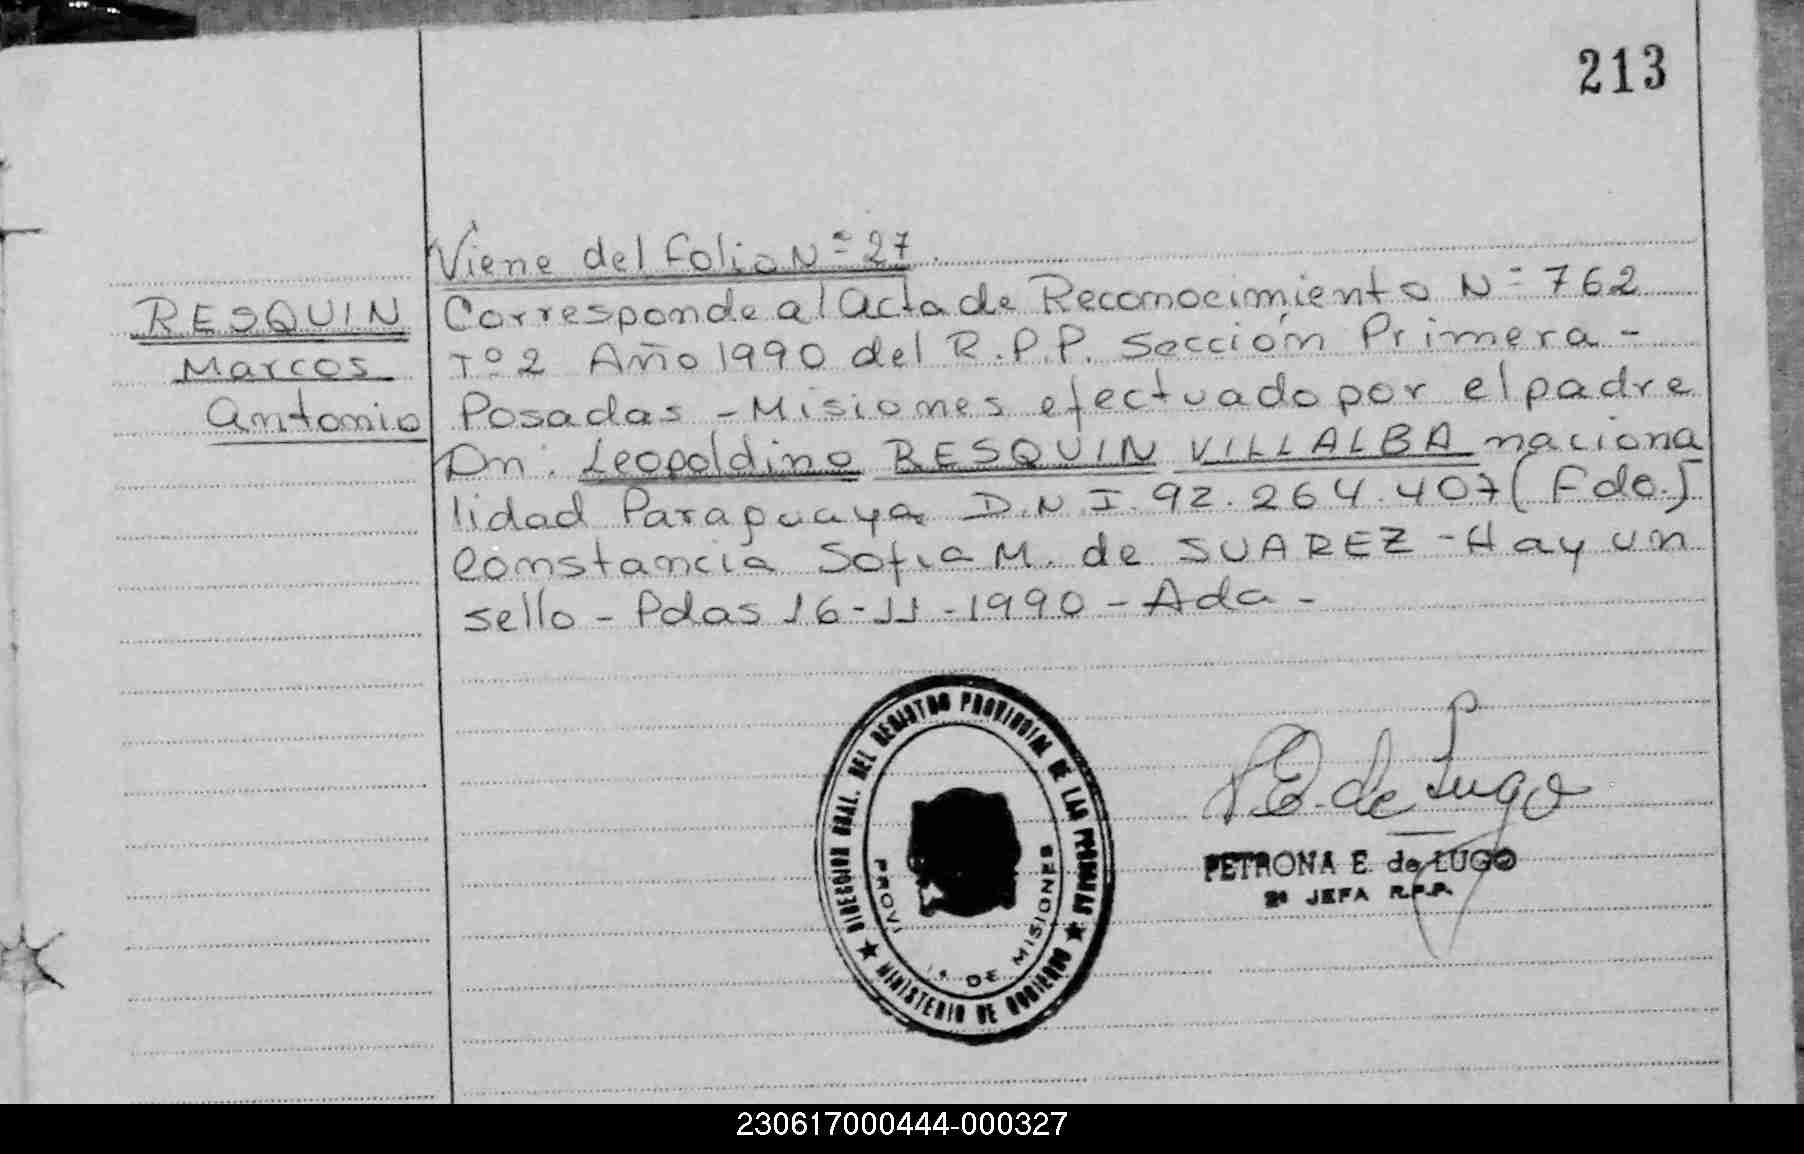 213
Viene del folio Nº 27
RESQUIN
Marcos
Antonio
Corresponde al acta de Reconocimiento Nº 762
Tº 2 Año 1990 del R.P.P. Sección Primera -
Posadas - Misiones efectuado por el padre
Dn. Leopoldino RESQUIN VILLALBA naciona
lidad Paraguaya D.N.I. 92.264.407 (Fdo.)
Constancia Sofia M. de SUAREZ - Hay un
sello - Pdas 16-11-1990 - Ada -
DIRECCION GRAL. DEL REGISTRO PROVINCIAL DE LAS PERSONAS
MINISTERIO DE GOBIERNO
PROVI DE MISIONES
P.E. de Lugo
PETRONA E. de LUGO
2ª JEFA R.P.P.
230617000444-000327